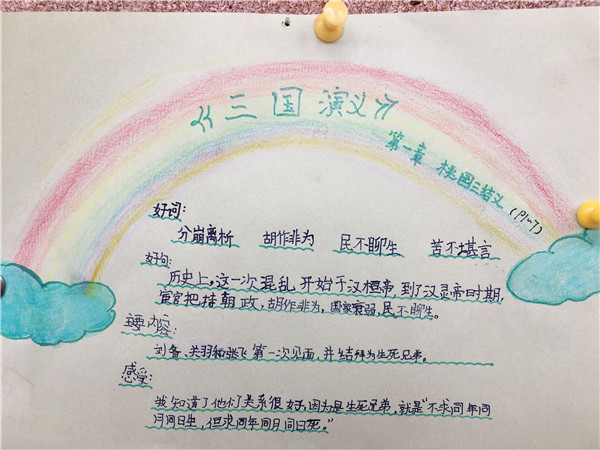 《三国演义》
第一章 桃园三结义 (P1~7)
好词:
分崩离析 胡作非为 民不聊生 苦不堪言
好句:
历史上,这一次混乱,开始于汉桓帝,到了汉灵帝时期,
宦官把持朝政,胡作非为,国家衰弱,民不聊生。
主要内容:
刘备、关羽和张飞第一次见面,并结拜为生死兄弟。
感受:
我知道了他们关系很好,因为是生死兄弟,就是“不求同年同
月同日生,但求同年同月同日死。”